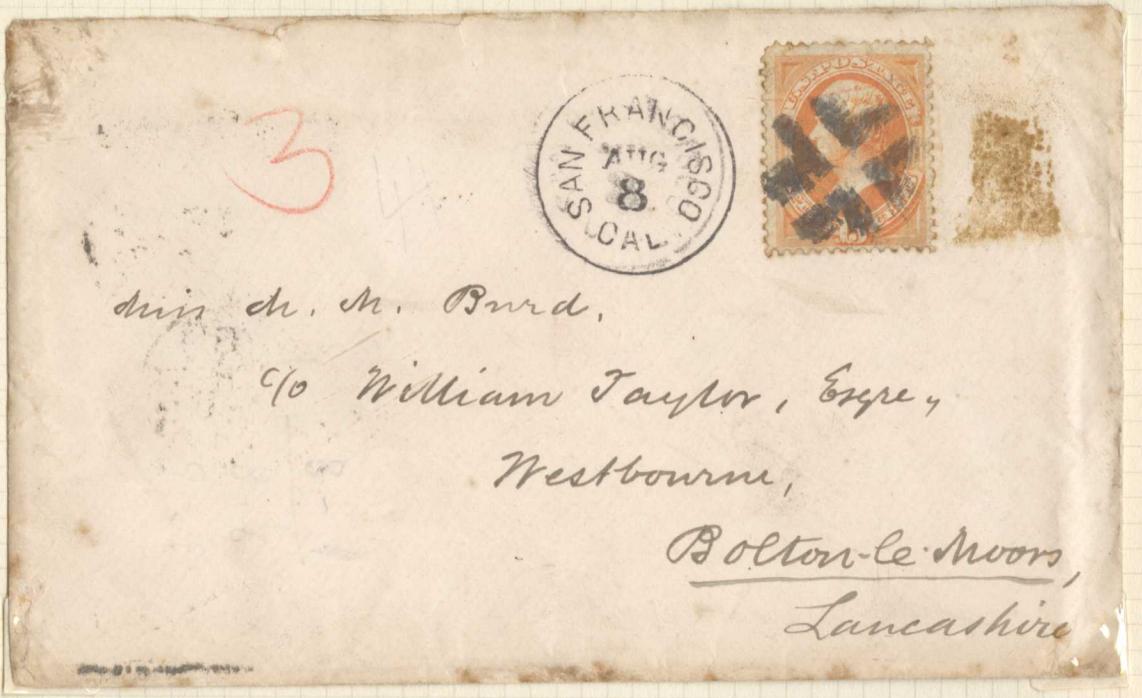 3
SAN FRANCISCO
AUG
8
CAL
U.S. POSTAGE
Miss M. M. Burd,
c/o William Taylor, Esqre,,
Westbourne,
Bolton-le-Moors,
Lancashire